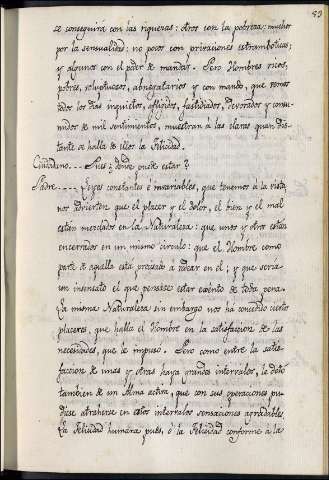 83
se conseguirá con las riquezas: otros con la pobreza: muchos
por la sensualidad: no pocos con privaciones estrambóticas;
y algunos con el poder de mandar. Pero Hombres ricos,
pobres, voluptuosos, abnegatarios y con mando, que vemos
todos los dias inquietos, afligidos, fastidiados, devorados y consu-
midos de mil sentimientos, muestran á las claras quan dis-
tante se halla de ellos la felicidad.
Ciudadano.---- Pues ¿donde puede estar?
Padre.---- Leyes constantes é invariables, que tenemos á la vista,
nos advierten que el placer y el dolor, el bien y el mal
están mezclados en la Naturaleza: que unos y otros están
encerrados en un mismo circulo: que el Hombre como
parte de aquella está precisado á rodar en él; y que será
un insensato el que pensase estar exênto de toda pena.
La misma Naturaleza sin embargo nos ha concedido ciertos
placeres, que halla el Hombre en la satisfaccion de las
necesidades, que le impuso. Pero como entre la satis-
faccion de unas y otras haya grandes intervalos, le dotó
tambien de un Alma activa, que con sus operaciones pu-
diese atraherse en estos intervalos sensaciones agradables.
La felicidad humana pues, ó la felicidad conforme á la